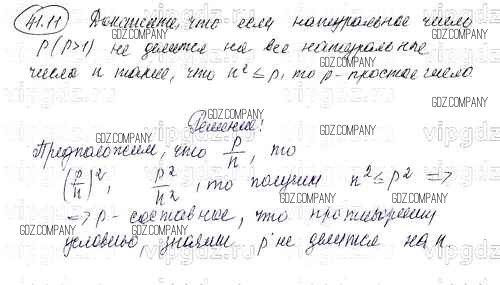 41.11 Докажите, что если натуральное число
p (p>1) не делится на все натуральные
числа n такие, что n² ≤ p, то p - простое число
Решение!
Предположим, что p/n, то
(p/n)², p²/n², то получим n² ≤ p² =>
=> p - составное, что противоречит
условию, значит p не делится на n.
GDZ.COMPANY
vipgdz.com